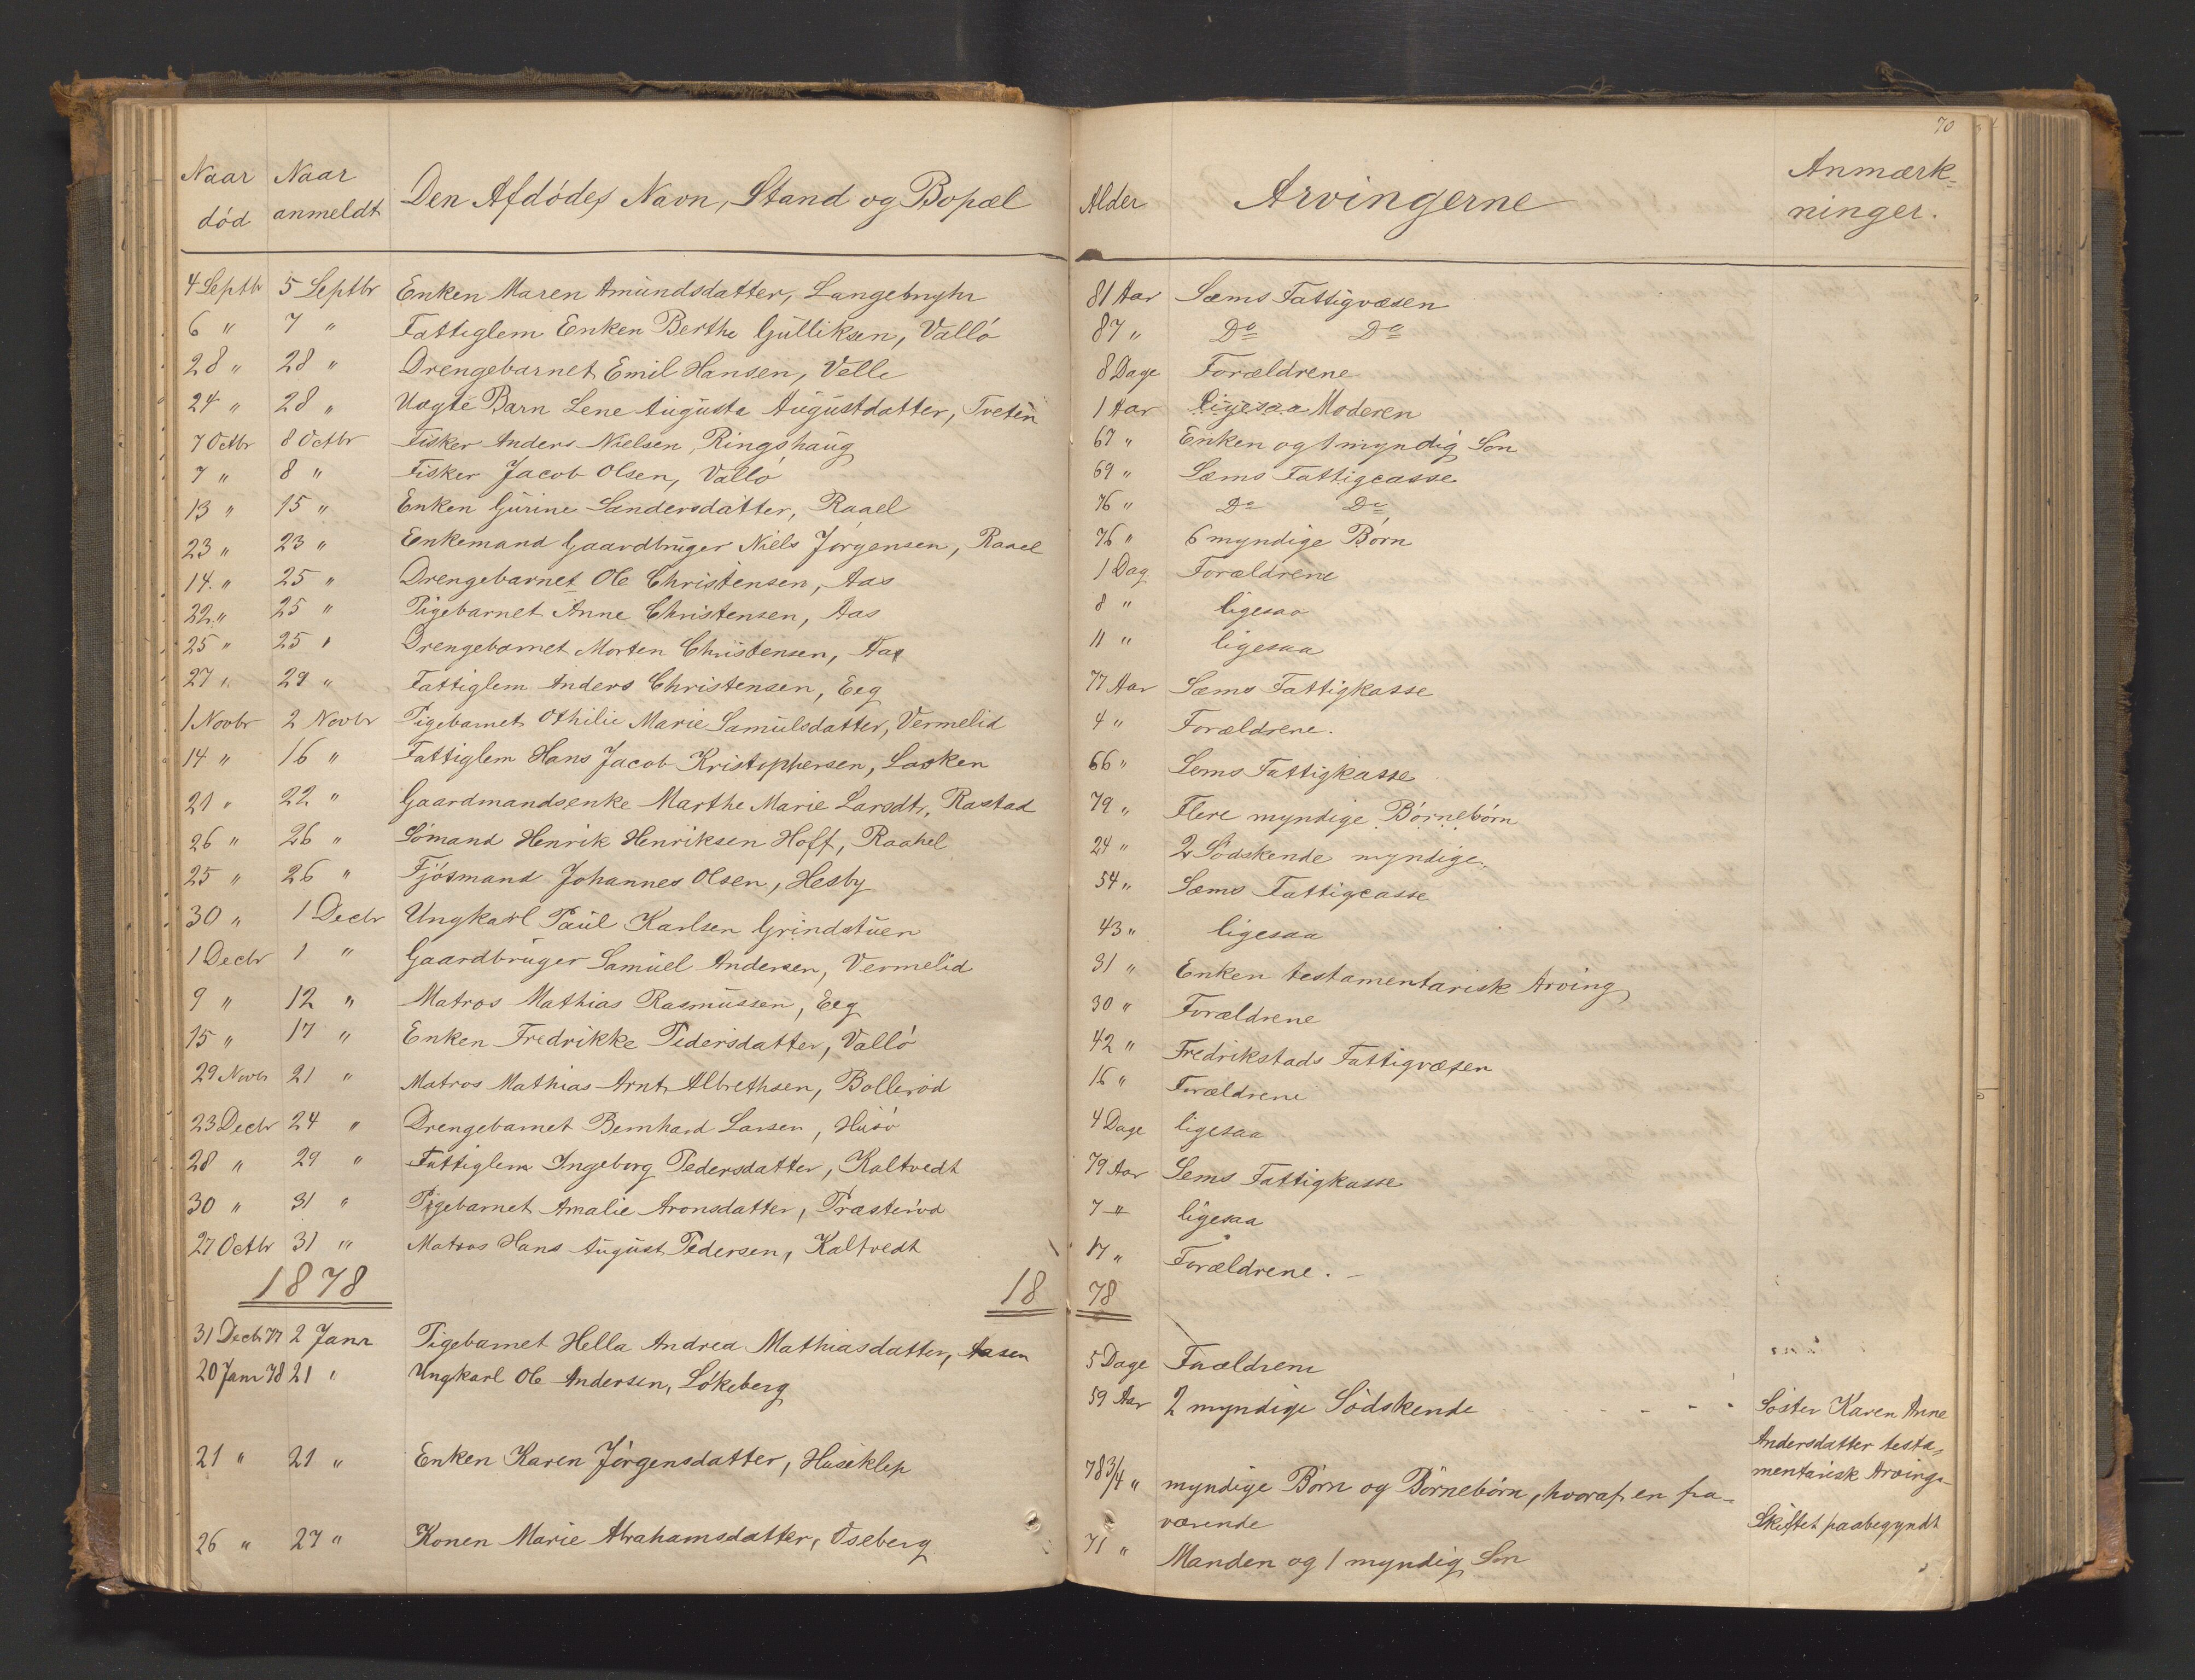 70
Naar død Naar anmeldt Den Afdødes Navn, Stand og Bopæl Alder Arvingerne Anmærkninger.
4 Septbr 5 Septbr Enken Maren Amundsdatter, 81 Aar Sæms Fattigvæsen
6 " 7 " Fattiglem Enken Berthe Gulliksen, Valló 87 " Do Do
28 " 28 " Drengebarnet Emil Hansen, Velle 8 Dage Forældrene
24 " 28 " Uægte Barn Lene Augusta Augustdatter, Tveten 1 Aar ligesaa Moderen
7 Octbr 8 Octbr Fisker Anders Nielsen, Ringshaug 67 " Enken og 1 myndig Søn
7 " 8 " Fisker Jacob Olsen, Valló 69 " Sæms Fattigcasse
13 " 15 " Enken Gurine Sandersdatter, Raael 76 " Do Do
23 " 23 " Enkemand Gaardbruger Niels Jørgensen, Raael 76 " 6 myndige Børn
14. " 25 " Drengebarnet Ole Christensen, Aas 1 Dag Forældrene
22. " 25 " Pigebarnet Anne Christensen, Aas 8 " ligesaa
25 " 25 " Drengebarnet Morten Christensen, Aas 11 " ligesaa
27 " 29 " Fattiglem Anders Christensen, Eeg 77 Aar Sæms Fattigkasse
1 Novbr 2 Novbr Pigebarnet Othilie Marie Samulsdatter, Vermelid 4 " Forældrene.
14 " 16 " Fattiglem Hans Jacob Kristophersen, Lasken 66 " Sems Fattigkasse
21 " 22 " Gaardmandsenke Marthe Marie Larsdtr, Rastad 79 " Flere myndige Børnebørn
26 " 26 " Sømand Henrik Henriksen Hoff, Raahel 24 " 2 Sødskende myndige.
25 " 26 " Fjøsmand Johannes Olsen, Hesby 54 " Sæms Fattigcasse
30 " 1 Decbr Ungkarl Paul Karlsen Grindstuen 43 " ligesaa
1 Decbr 1 " Gaardbruger Samuel Andersen, Vermelid 31 " Enken testamentarisk Arving
9 " 12 " Matros Mathias Rasmussen, Eeg 30 " Forældrene
15 " 17 " Enken Fredrikke Pedersdatter, Valló 42 " Fredrikstads Fattigvæsen
29 Novbr 21 " Matros Mathias Arnt Albrethsen, Bollerød 16 " Forældrene
23 Decbr 24 " Drengebarnet Bernhard Larsen, Husø 4 Dage ligesaa
28 " 29 " Fattiglem Ingeborg Pedersdatter, Kaltvedt 79 Aar Sems Fattigkasse
30 " 31 " Pigebarnet Amalie Aronsdatter, Præsterød 7 " ligesaa
27 Octbr 31 " Matros Hans August Pedersen, Kaltvedt 17 " Forældrene. –
1878 18 78
31 Decb 77 2 Janr Pigebarnet Hella Andrea Mathiasdatter, Aasen 5 Dage Forældrene
20 Janr 78 21 " Ungkarl Ole Andersen, Løkeberg 59 Aar 2 myndige Sødskende - - - - Søster Karen Anne
Andersdatter testa-
mentarisk Arving-
21 " 21 " Enken Karen Jørgensdatter, Huseklep 78 3/4 " myndige Børn og Børnebørn, hvoraf en fra-
værende Skiftet paabegyndt
26 " 27 " Konen Marie Abrahamsdatter, Oseberg 71 " Manden og 1 myndig Søn